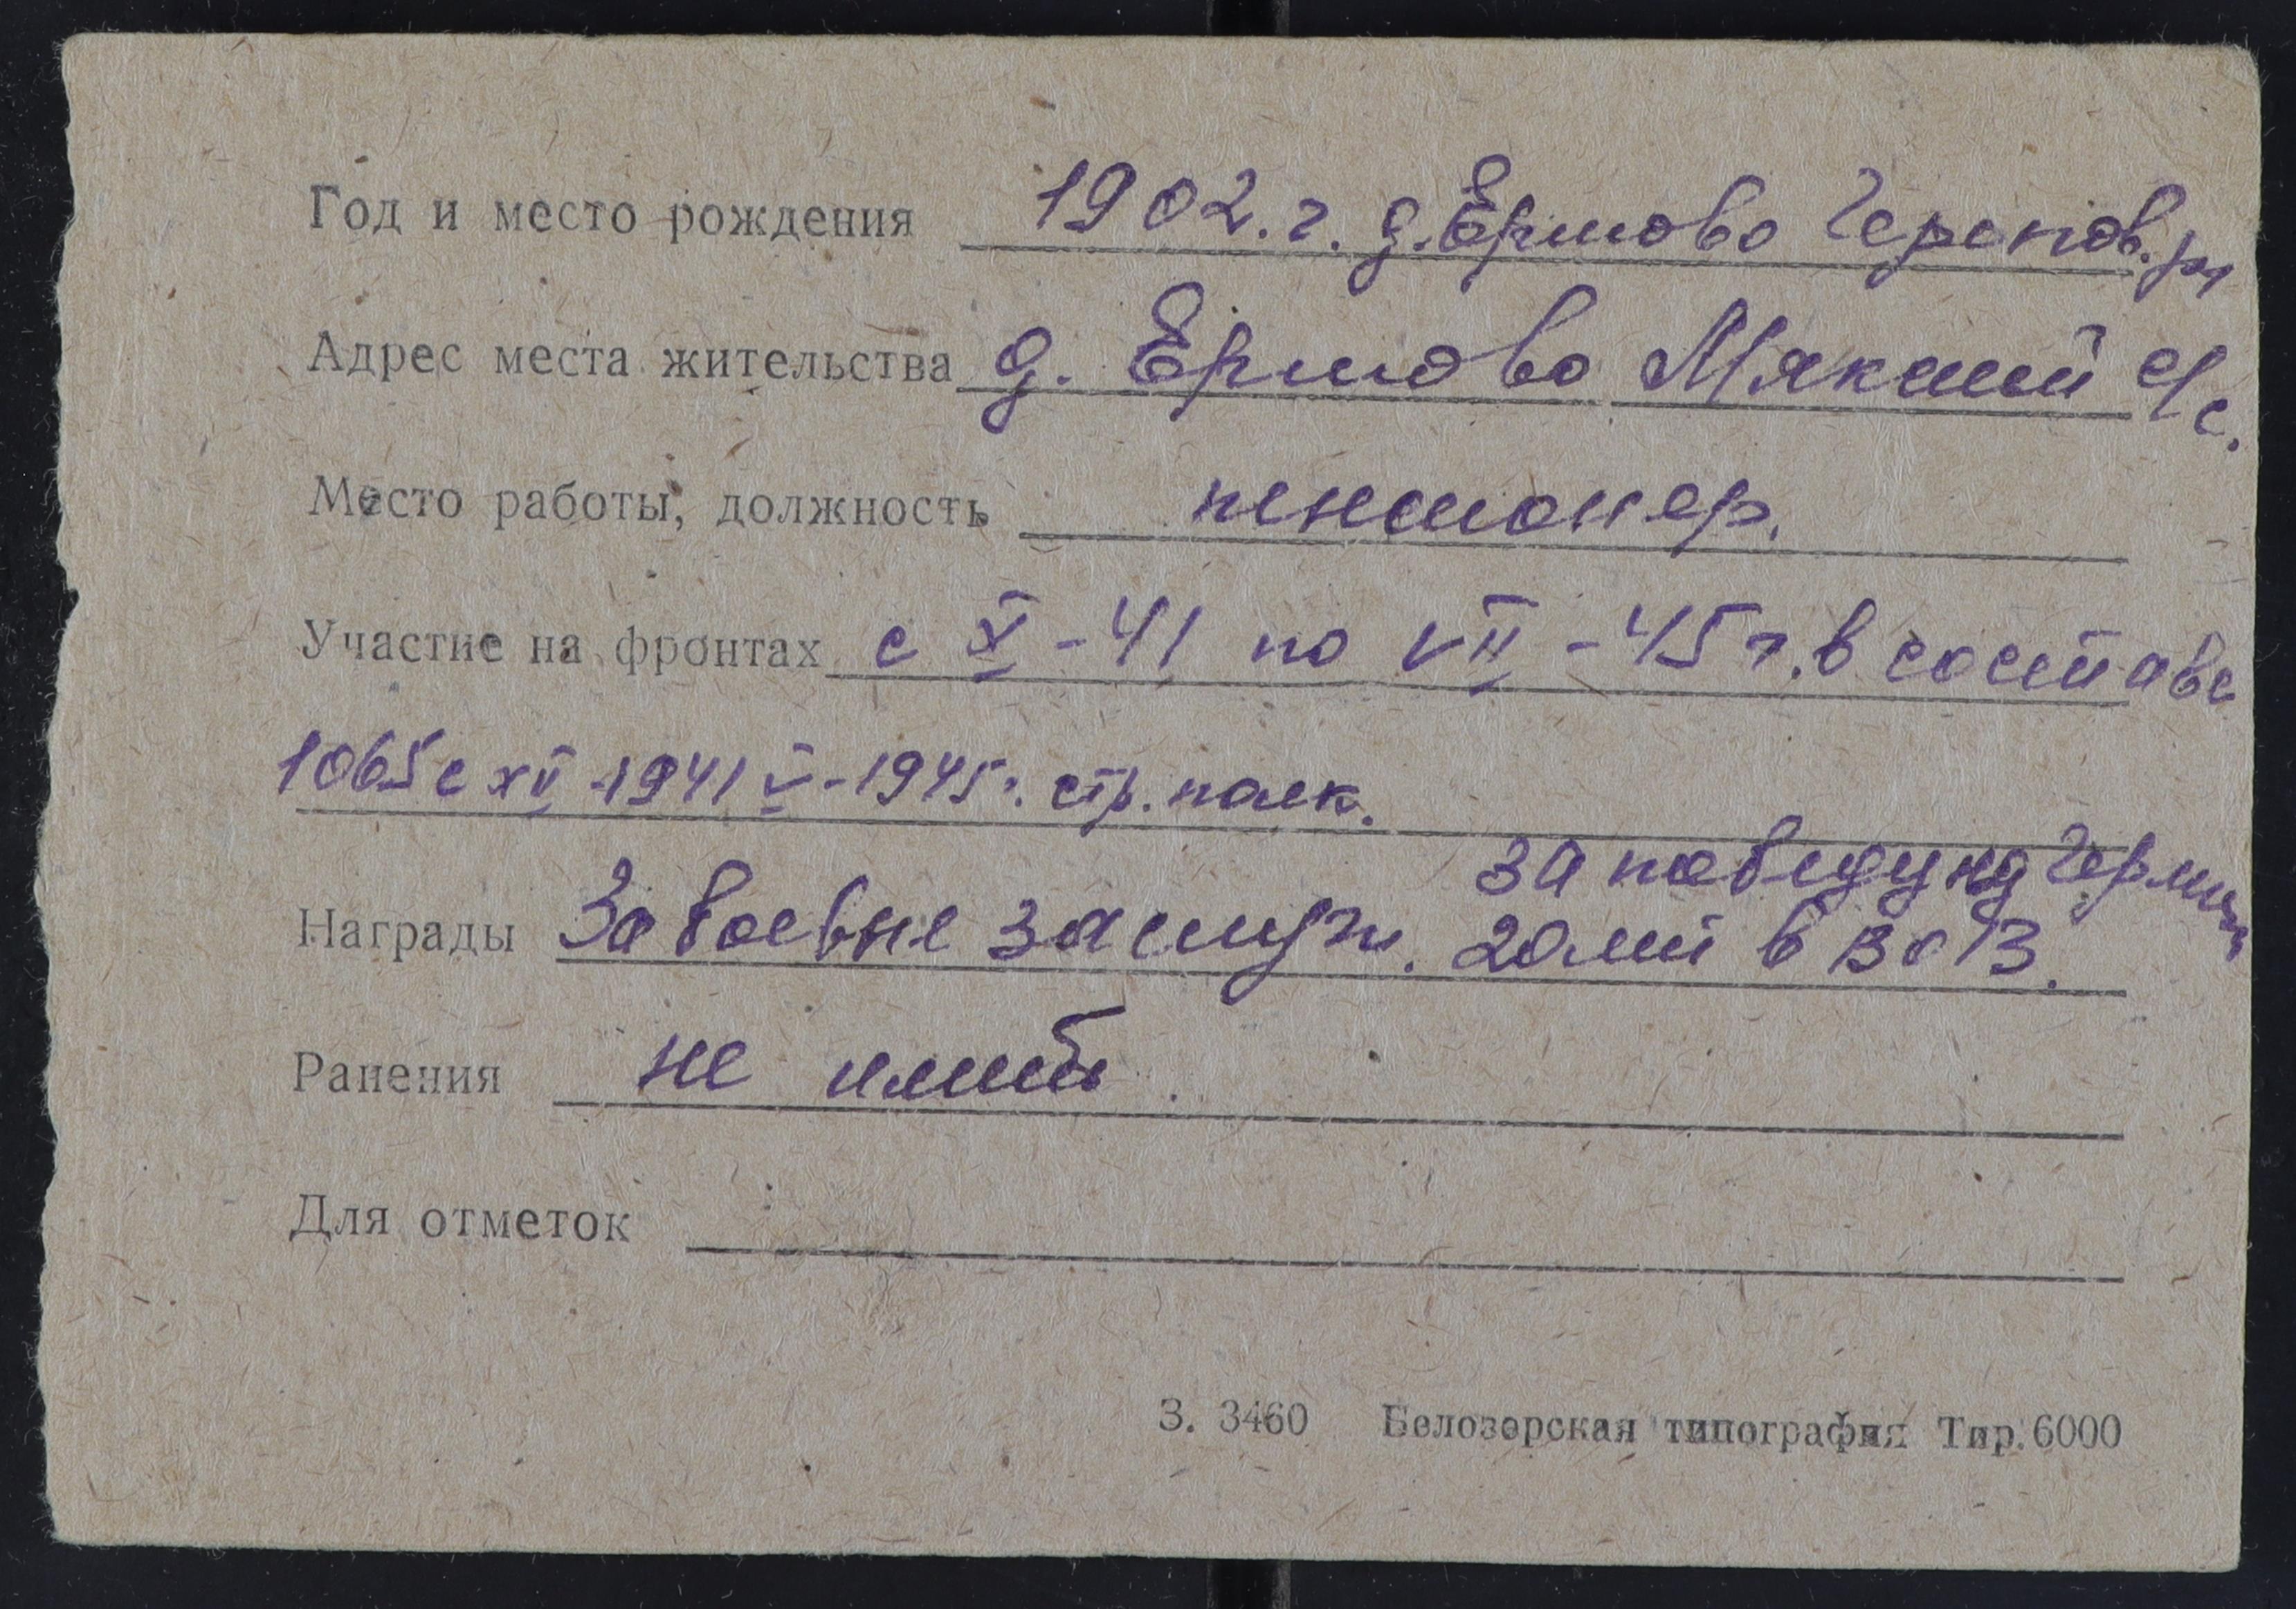 Год и место рождения 1902.г. д.Ермово Черепов. р-н
Адрес места жительства д. Ермово Мякший с/с.
Место работы, должность пенсионер.
Участие на фронтах с X-41 по VII-45 г. в составе
1065 с XII-1941 V-1945г. стр. полк.
за победу над Герман
Награды За боевые заслуги. 20 лет в ВОВ.
Ранения не имеет
Для отметок
З. 3460 Белозерская типография Тир. 6000